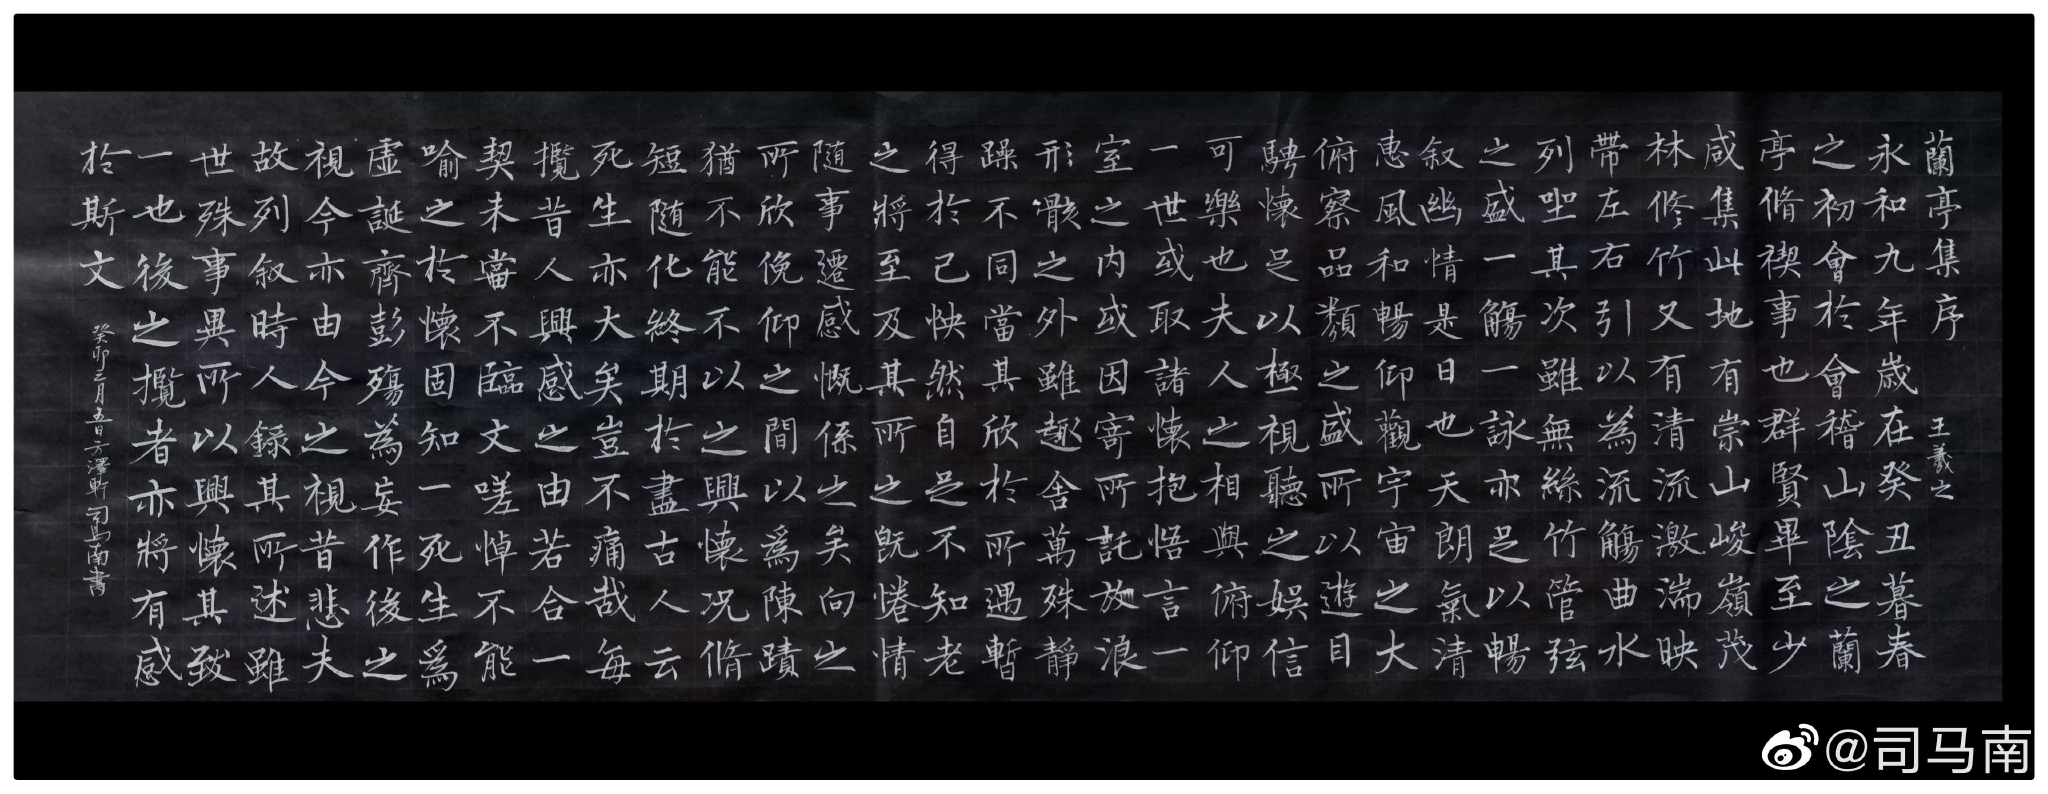 蘭亭集序 王羲之
永和九年歲在癸丑暮春
之初會於會稽山陰之蘭
亭脩禊事也群賢畢至少
咸集此地有崇山峻嶺茂
林修竹又有清流激湍映
帶左右引以為流觴曲水
列坐其次雖無絲竹管弦
之盛一觴一詠亦足以暢
叙幽情是日也天朗氣清
惠風和暢仰觀宇宙之大
俯察品類之盛所以遊目
騁懷足以極視聽之娛信
可樂也夫人之相與俯仰
一世或取諸懷抱悟言一
室之内或因寄所託放浪
形骸之外雖趣舍萬殊靜
躁不同當其欣於所遇暫
得於己怏然自足不知老
之將至及其所之既惓情
随事遷感慨係之矣向之
所欣俛仰之間以爲陳蹟
猶不能不以之興懷况脩
短随化終期於盡古人云
死生亦大矣豈不痛哉每
攬昔人興感之由若合一
契未嘗不臨文嗟悼不能
喻之於懷固知一死生爲
虛誕齊彭殤為妄作後之
視今亦由今之視昔悲夫
故列叙時人錄其所述雖
世殊事異所以興懷其致
一也後之攬者亦將有感
於斯文
癸卯三月五日方澤軒司馬南書
@司马南